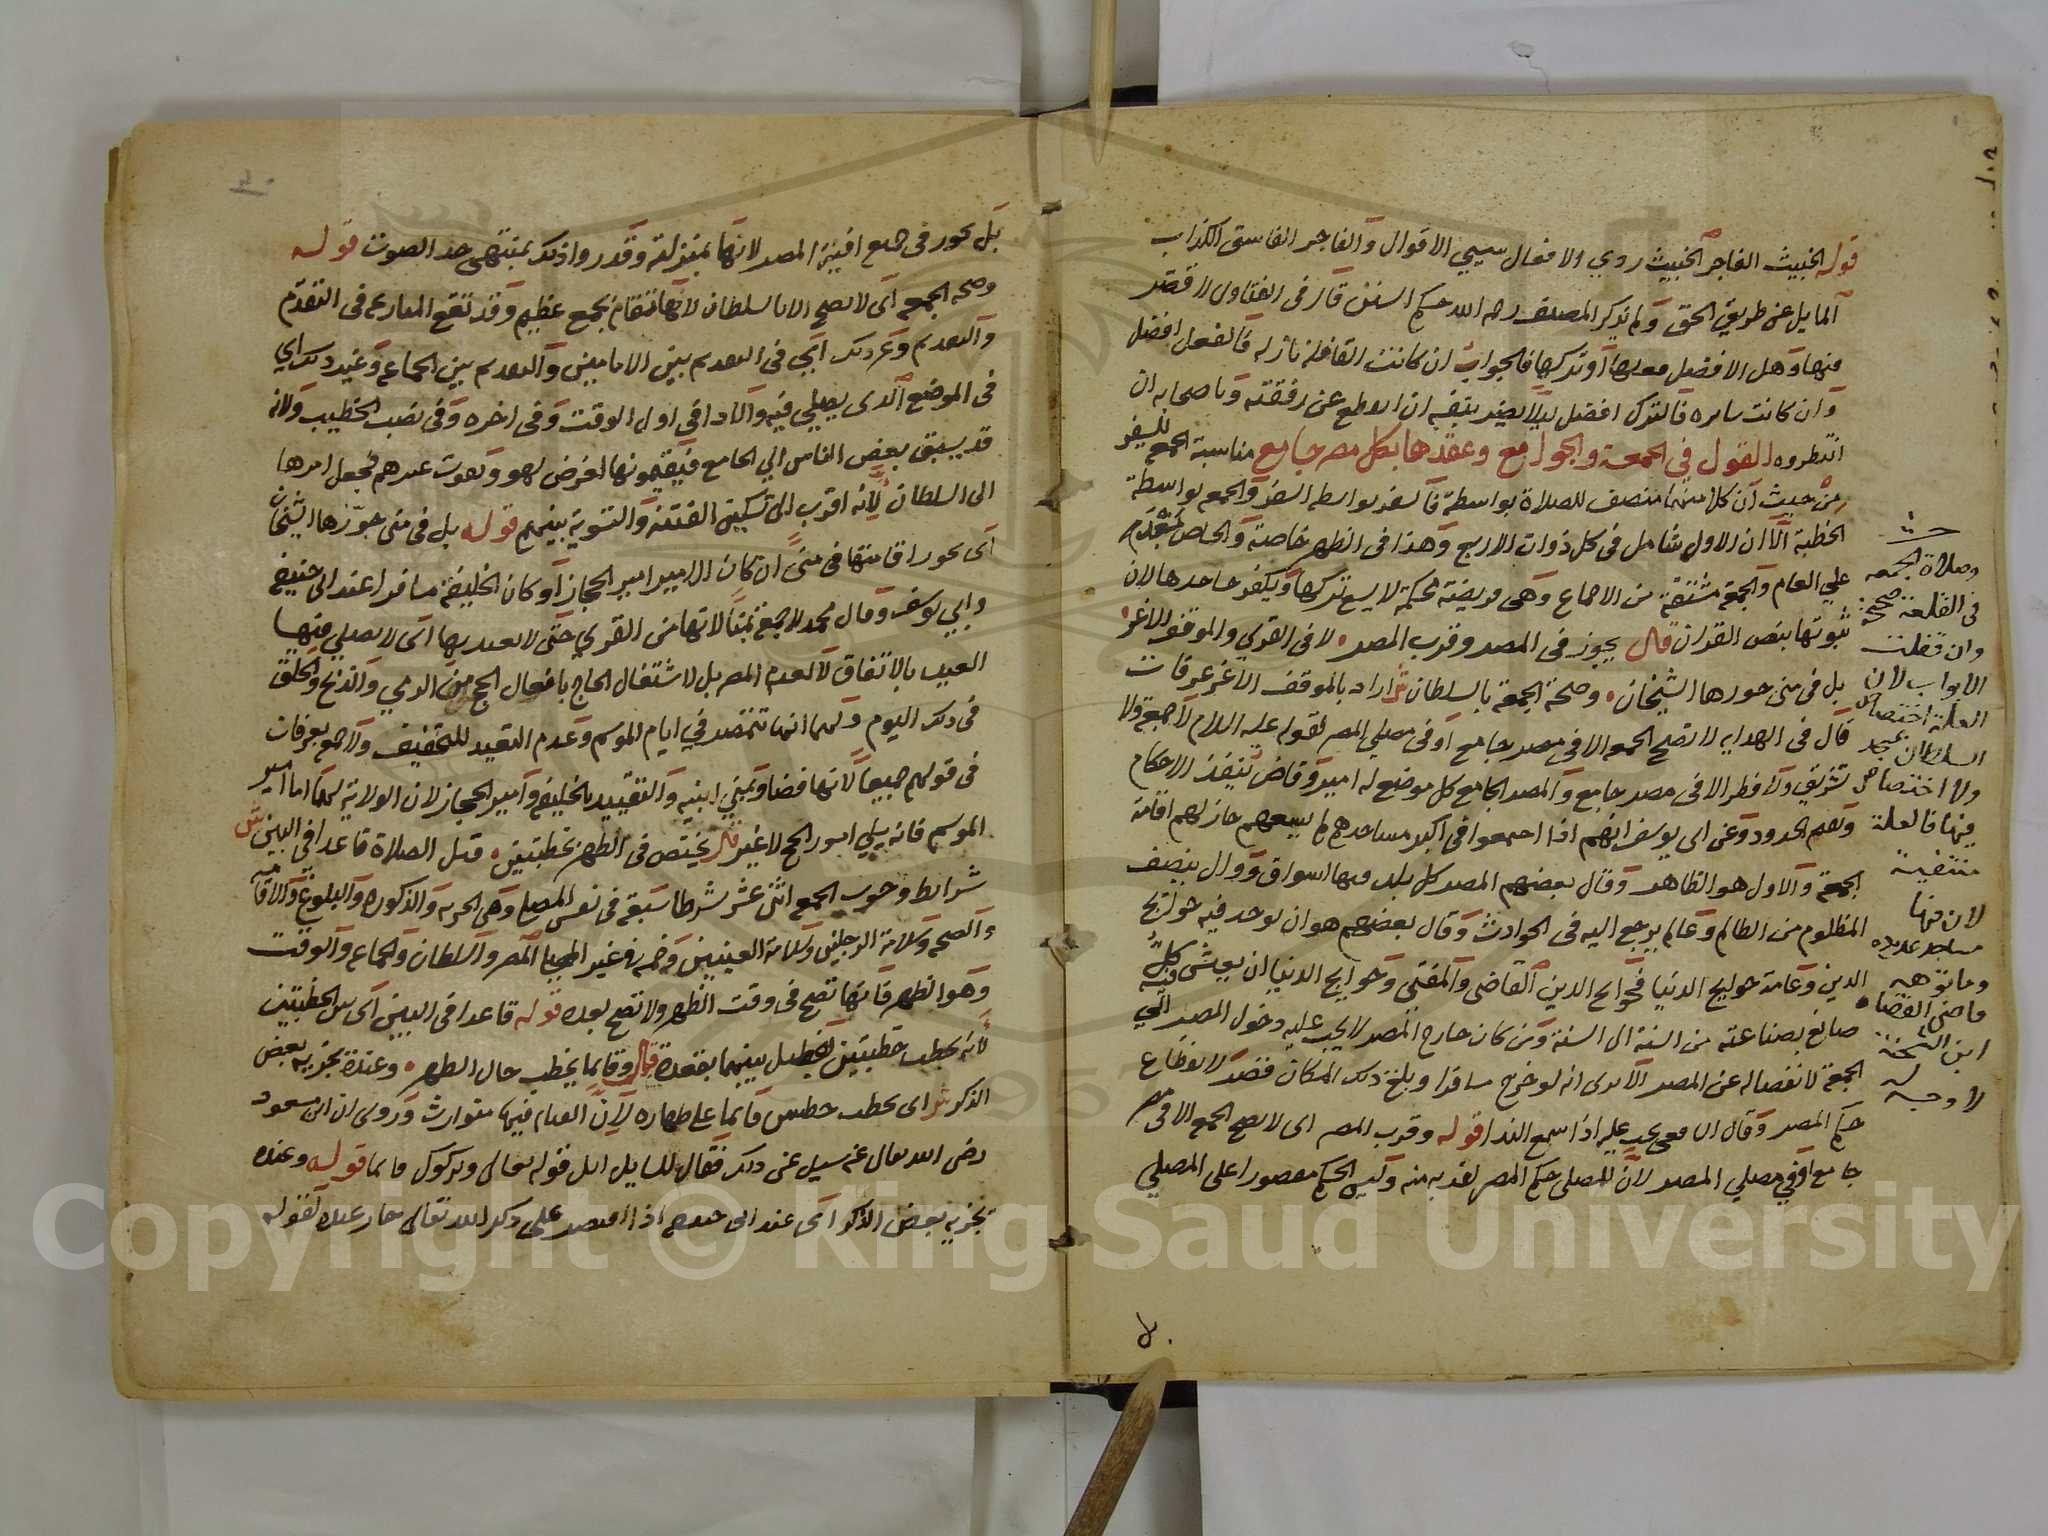 قوله الخبيث الفاجر الخبيث ردي الافعال سيي الاقوال والفاجر الفاسق الكذاب
المايل عن طريق الحق ولم يذكر المصنف رحمه الله حكم السنن قال في الفتاوى لا قصر
فيها وهل الافضل فعلها او تركها فالجواب ان كانت القافلة نازله فالفعل افضل
وان كانت سايره فالترك افضل ليلا يضر بنفسه ان انقطع عن رفقته وباصحابه ان
انتظروه القول في الجمعة والجوامع وعقدها بكل مصر جامع مناسبة الجمع للسفر
من حيث ان كلا منهما منصف للصلاة بواسطة فالسفر بواسطه السفر والجمعه بواسطة
الخطبة الا ان الاول شامل في كل ذوات الاربع وهذا في الظهر خاصة والخاص
علي العام والجمعة مشتقة من الاجماع وهي فريضة محكمة لا يسع تركها ويكفر جاحدها لان
ثبوتها بنص القران قال يجوز في المصر وقرب المصر لا في القري والموقف الاغر
بل في منى جوزها الشيخان وصحة الجمعة بالسلطان ش اراد بالموقف الاغر عرفات
قال في الهدايه لا تصح الجمعه الا في مصر جامع او في مصلي المصر لقوله عليه السلام لا جمعة ولا
تشريق ولا فطر الا في مصر جامع والمصر الجامع كل موضع له امير وقاض ينفذ الاحكام
ويقيم الحدود وعن ابي يوسف انهم اذا اجتمعوا في اكبر مساجدهم لم يسعهم جاز لهم اقامة
الجمعة والاول هو الظاهر وقال بعضهم المصر كل بلد فيها اسواق ووال ينصف
المظلوم من الظالم وعالم يرجع اليه في الحوادث وقال بعضهم هو ان يوجد فيه حوايج
الدين وعامة حوايج الدنيا فحوايج الدين القاضي والمفتي وحوايج الدنيا ان يعيش فيه كل
صانع بصناعته من السنة الى السنة ومن كان خارج المصر لا يجب عليه دخول المصر الي
الجمعة لانفصاله عن المصر الا ترى انه لو خرج مسافرا وبلغ ذلك المكان قصر لانقطاع
حكم المصر وقال الشافعي يجب عليه اذا سمع الندا قوله وقرب المصر اي لا تصح الجمعه الا في مصر
جامع او في مصلي المصر لان للمصلى حكم المصر لقربه منه وليس الحكم مقصورا على المصلي
وصلاة الجمعه
في القلعة صحيحة
وان قفلت
الابواب لان
العلة اختصاص
السلطان بمسجد
ولا اختصاص
فيها فالعلة
منتفية
لان فيها
مساجد عديده
وما توهمه
قاضي القضاه
ابن الشحنة
لا وجه له
بل
بل يجوز في جميع افنية المصر لانها بمنزلته وقدروا ذلك بمنتهى حد الصوت قوله
وصحه الجمعه اي لا تصح الا بالسلطان لانها تقام بجمع عظيم وقد تقع المنازعه في التقدم
والتقديم وغير ذلك اي في التقديم بين الامامين والتقديم بين الجماعه وغير ذلك اي
في الموضع الذي يصلي فيه والاداء في اول الوقت وفي اخره وفي نصب الخطيب ولانه
قد يسبق بعض الناس الي الجامع فيقيمونها لغرض لهم وتفوت غيرهم فجعل امرها
الى السلطان لانه اقرب الى تسكين الفتنة والتسوية بينهم قوله بل في منى جوزها الشيخان
اي يجوز اقامتها في منى ان كان الامير امير الحجاز او كان الخليفة مسافرا عند ابي حنيفة
وابي يوسف وقال محمد لا جمعة بمنى لانها من القرى حتى لا يعيد بها اي لا يصلي فيها
العيد بالاتفاق لا لعدم المصر بل لاشتغال الحاج بافعال الحج من الرمي والذبح والحلق
في ذلك اليوم ولهما انها تتمصر في ايام الموسم وعدم التعييد للتخفيف ولا جمعه بعرفات
في قولهم جميعا لانها فضا وبمنى ابنيه والتقييد بالخليفة وامير الحجاز لان الولاية لهما اما امير
الموسم فانه يلي امور الحج لا غير قال يختص في الظهر بخطبتين قبل الصلاة قاعدا في البين ش
شرايط وجوب الجمعه اثني عشر شرطا سبعه في نفس المصلي وهي الحريه والذكوره والبلوغ والاقامة
والصحه وسلامة الرجلين وسلامة العينين وخمسه في غير المصلي المصر والسلطان والجماعه والوقت
وهو الظهر فانها تصح في وقت الظهر ولا تصح بعده قوله قاعدا في البين اي بين الخطبتين
لانه يخطب خطبتين يفصل بينهما بقعدة قال وقايما يخطب حال الطهر وعنده يجزيه بعض
الذكر ش اي يخطب خطبتين قايما على طهاره لان القيام فيهما متوارث وروى ان ابن مسعود
رضي الله تعالى عنه سيل عن ذلك فقال للسايل اتل قوله تعالى وتركوك قايما قوله وعنده
يجزيه بعض الذكر اي عند ابي حنيفه اذا اقتصر على ذكر الله تعالى جاز عنده لقوله
Copyright © King Saud University
1957